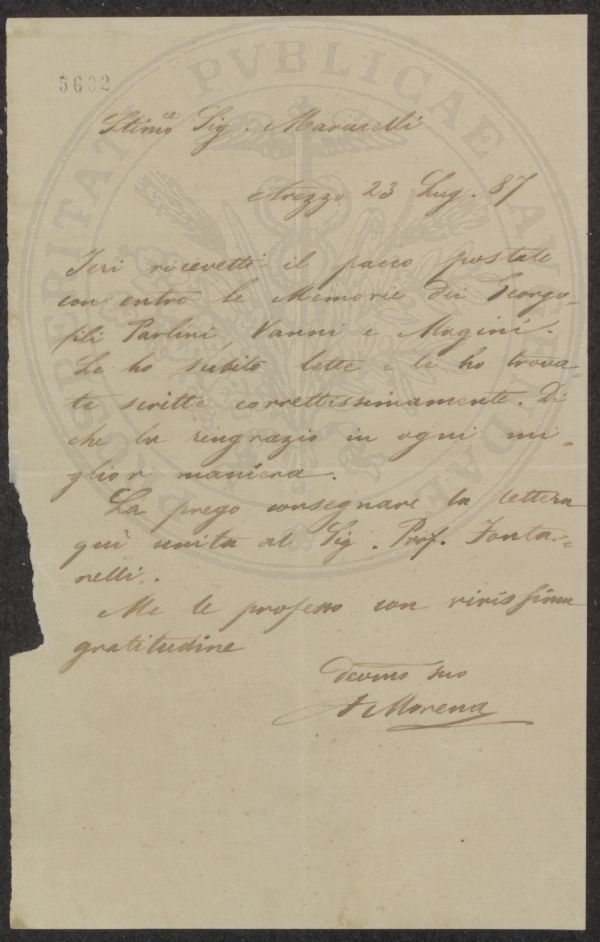 5602
Stimo Sig. Marucelli
Arezzo 23 Lug. 87
Ieri ricevetti il pacco postale
con entro le Memorie dei Georgo-
fili Paolini, Vanni e Magini.
Le ho subito lette e le ho trova-
te scritte correttissimamente. Di
che la ringrazio in ogni mi-
glior maniera.
La prego consegnare la lettera
quì unita al Sig. Prof. Fonta-
nelli.
Me le professo con vivissima
gratitudine
Devmo suo
A Morena
PROSPERITATI PVBLICAE AVGENDAE